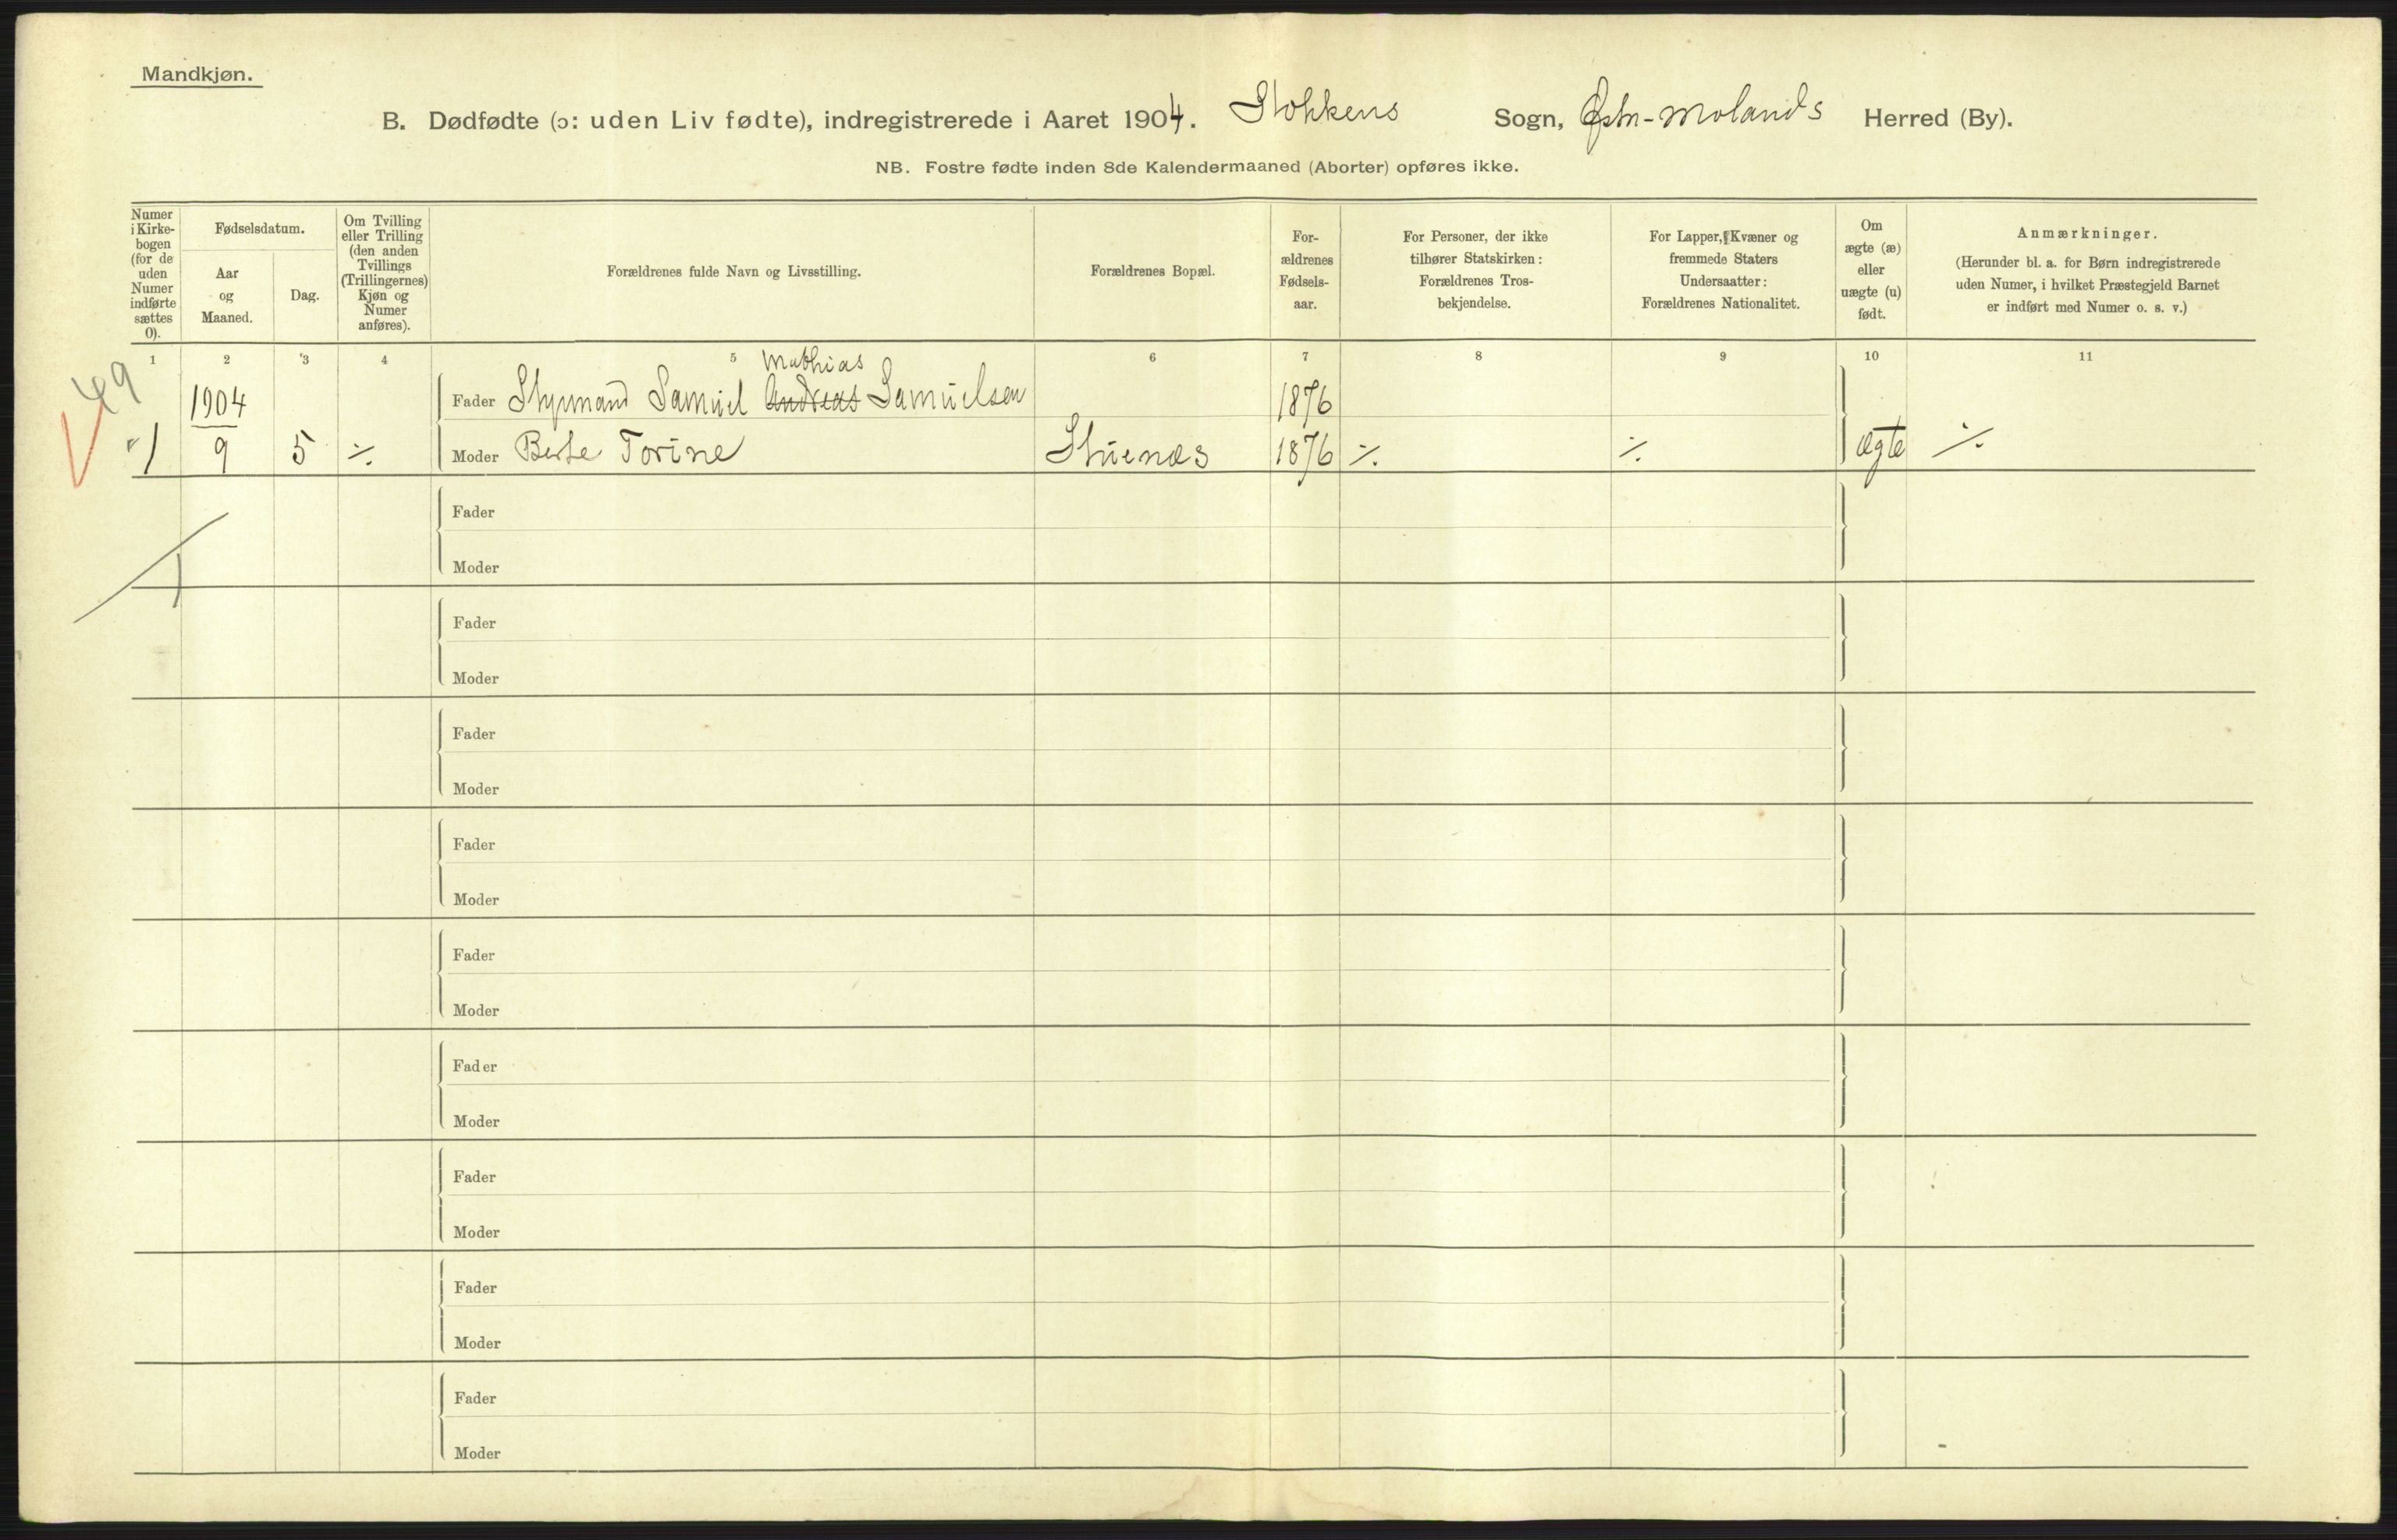 Mandkjøn.
B. Dødfødte (ɔ: uden Liv fødte), indregistrerede i Aaret 1904. Stokkens Sogn, Østre-Molands Herred (By).
NB. Fostre fødte inden 8de Kalendermaaned (Aborter) opføres ikke.
Numer i Kirke-bogen (for de uden Numer indførte sættes 0).
Fødselsdatum.
Aar og Maaned.
Dag.
Om Tvilling eller Trilling (den anden Tvillings (Trillingernes) Kjøn og Numer anføres).
Forældrenes fulde Navn og Livsstilling.
Forældrenes Bopæl.
For-ældrenes Fødsels-aar.
For Personer, der ikke tilhører Statskirken: Forældrenes Tros-bekjendelse.
For Lapper, Kvæner og fremmede Staters Undersaatter: Forældrenes Nationalitet.
Om ægte (æ) eller uægte (u) født.
Anmærkninger.
(Herunder bl. a. for Børn indregistrerede uden Numer, i hvilket Præstegjeld Barnet er indført med Numer o. s. v.)
1 2 3 4 5 6 7 8 9 10 11
49
Mathias
1904 Fader Styrmand Samuel Andreas Samuelsen 1876
1 9 5 ÷ Moder Berte Torine Stuenæs 1876 ÷ ÷ ægte ÷
Fader
Moder
1
Fader
Moder
Fader
Moder
Fader
Moder
Fader
Moder
Fader
Moder
Fader
Moder
Fader
Moder
Fader
Moder